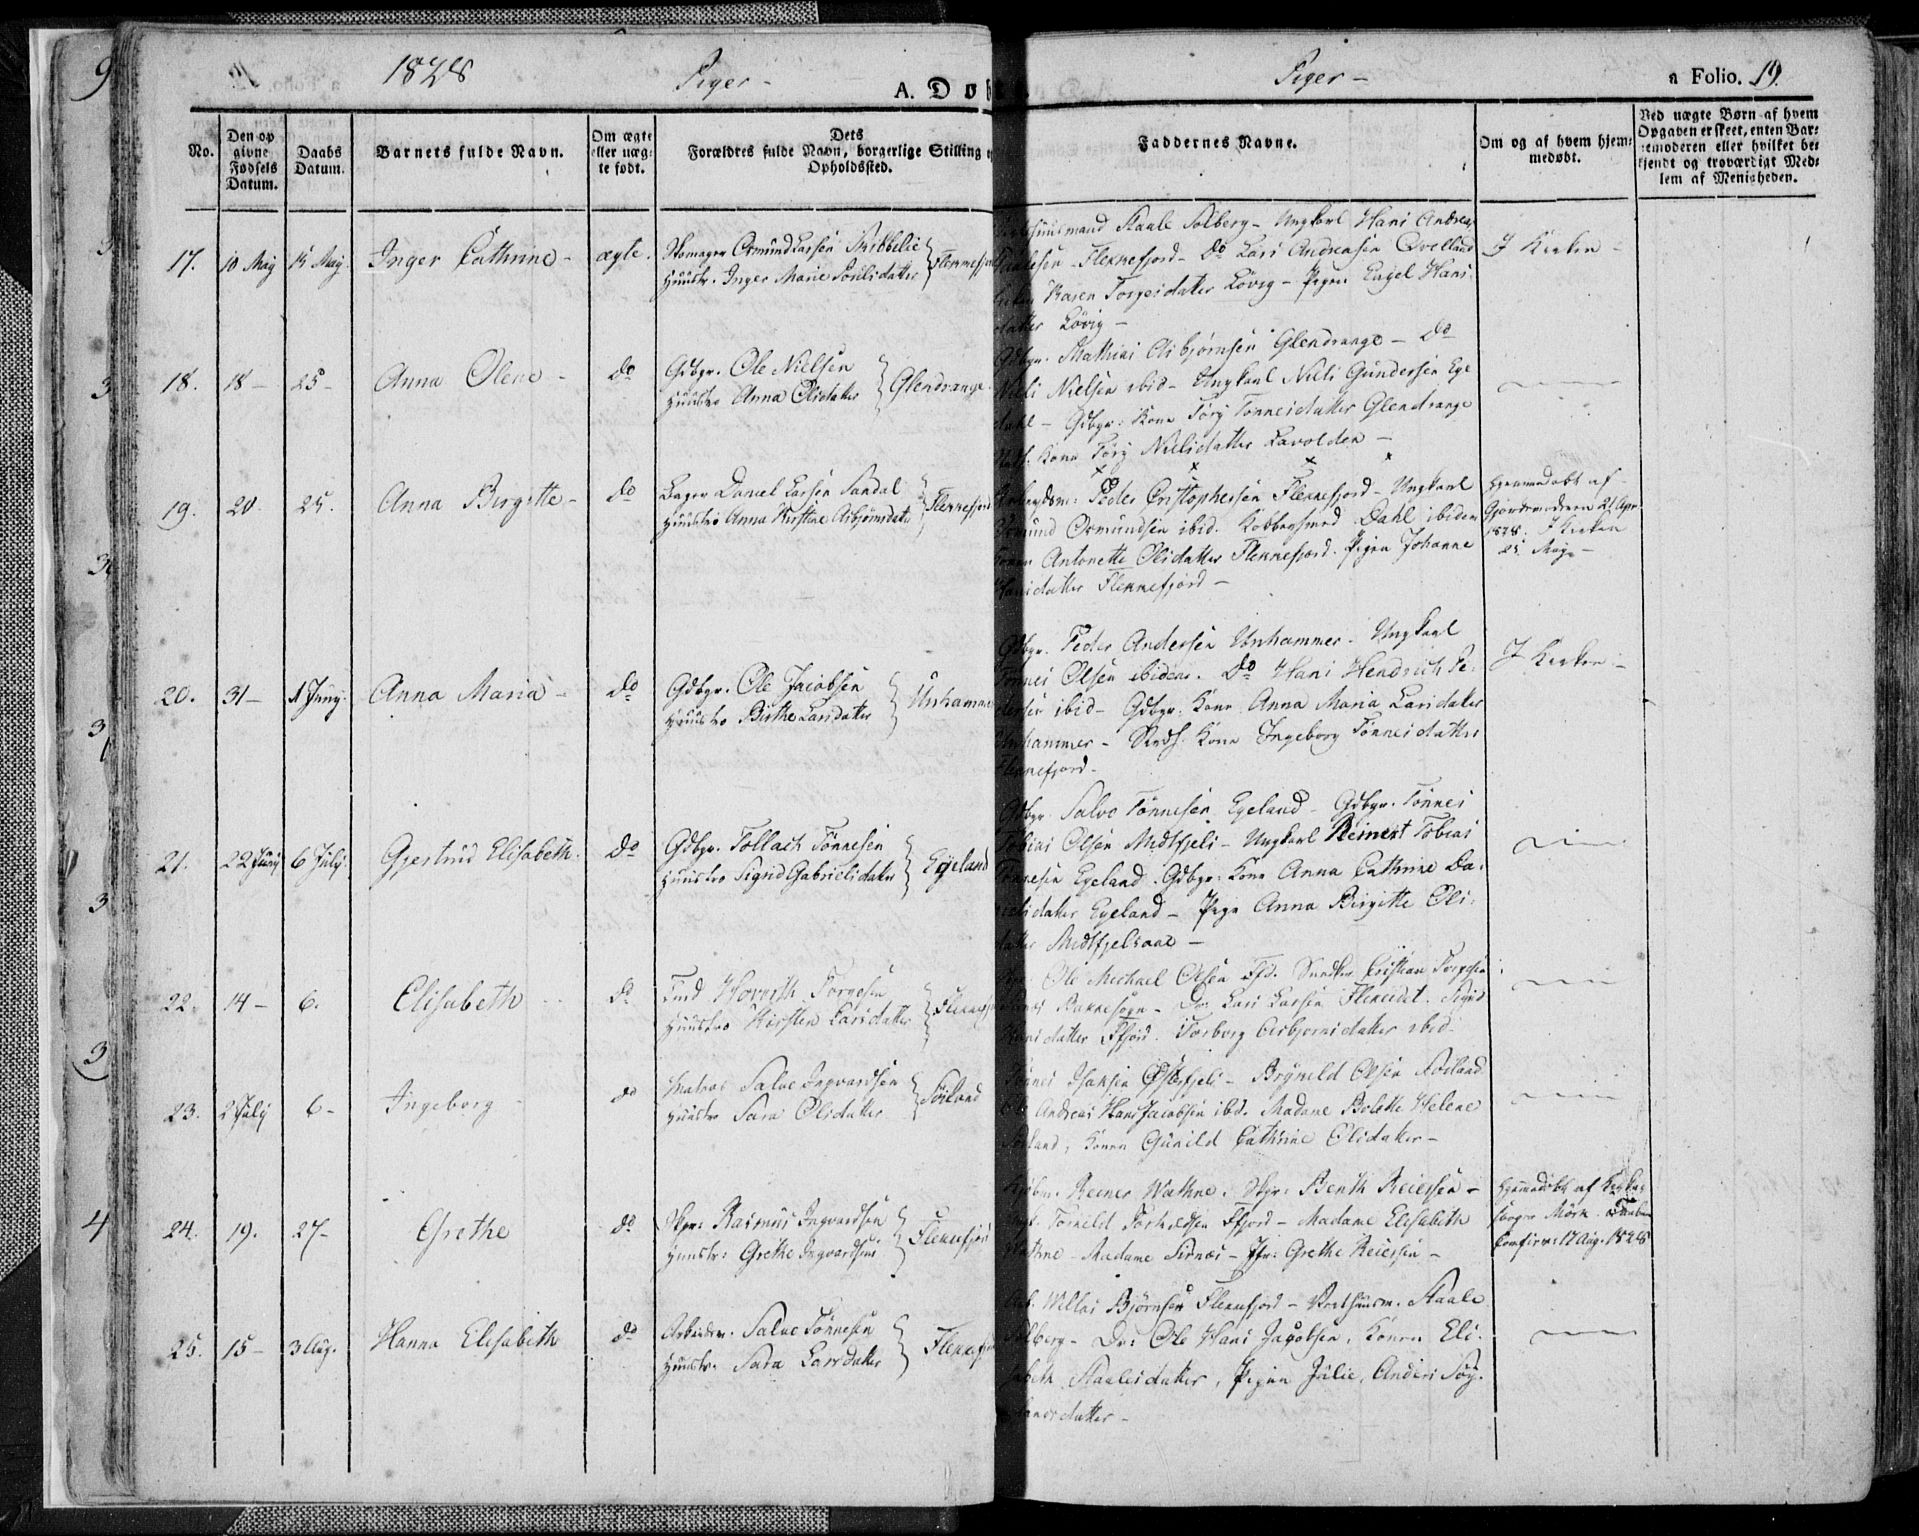 1828
Piger -
A. Døbte
Piger -
a Folio. 19.
No.
Den op
givne
Fødsels
Datum.
Daabs
Datum.
Barnets fulde Navn.
Om ægte
eller uæg-
te født.
Dets
Forældres fulde Navn, borgerlige Stilling
Opholdssted.
Faddernes Navne.
Om og af hvem hjem-
medøbt.
Ved uægte Børn af hvem
Opgaven er skeet, enten Bar-
nemoderen eller hvilket be-
kjendt og troværdigt Med-
lem af Menigheden.
17.
10 May
15 May
Inger Cathrine -
ægte.
Skomager Osmund Larsen Skibbelie
Huustr. Inger Marie Poulsdatter
Flekkefj
mand Staale Solberg - Ungkarl Hans Andrea
sen - Flekkefjord - Do Lars Andreasen Qvelland
Karen Torgersdatter Løvig - Pigen Engel Hans
datter Løvig -
I Kirken -
18.
18 -
25 -
Anna Olene -
Do
Gdbgr. Ole Nielsen
Huustro Anna Olsdatter
Glendrange.
Gdbgr. Mathias Asbjørnsen Glendrange - Do
Niels Nielsen ibid - Ungkarl Niels Gundersen Ege
dahl - Gdbgr: Kone Tørj Tønnesdatter Glendrange
Kone Tørj Nielsdatter Lavolden -
19.
20.
25.
Anna Birgitte -
do
Bager Daniel Larsen Sandal
Huustro Anna Kirstine Asbjørnsdatt
Flekkefjord
Arbeydsm: Peder Cristophersen Flekkefjord - Ungkarl
Osmund Osmundsen ibid. Kobbersmed Dahl ibidem
Konen Antonette Olsdatter Flekkefjord. Pigen Johanne
Hansdatter Flekkefjord -
Hjemmedøbt af
Gjordemoderen 21 Apr
1828. I Kirken
25 May -
20.
31 -
1 Juny.
Anna Maria -
do
Gdbgr. Ole Jacobsen
Huustro Birthe Larsdatter
Unhammer
Gdbgr. Peder Andersen Unhammer - Ungkarl
Tønnes Olsen ibidem. Do Hans Hendrich Pe-
dersen ibid - Gdbgr. Kone Anna Maria Larsdatter
Unhammer - Kone Ingeborg Tønnesdatter
Flekkefjord.
I Kirken -
21.
22 Juny
6 July.
Gjertrud Elisabeth.
do
Gdbgr. Tollach Tønnesen
Huustro Sigrid Gabrielsdatter
Egeland
Gdbgr Salve Tønnesen Egeland - Gdbgr. Tønnes
Tobias Olsen Midtfjeli - Ungkarl Reinert Tobias
Tønnesen Egeland. Gdbgr: Kone Anna Cathrine Da-
nielsdatter Egeland - Pige Anna Birgitte Ols-
datter Midtfjelsaae -
22.
14 -
6.
Elisabeth
do
Torgesen
Huustro Kirsten Larsdatter
Ole Michael Olsen Fjd. Cristian Torgesen
Bakkesogn - Do Lars Larsen Flikeidet. Sigrid
Hansdatter Ffjord. Torborg Asbjørnsdatter ibid.
23.
2 July
6 -
Ingeborg -
do
Matros Salve Ingvardsen
Huustro Sara Olsdatter
Søiland
Tønnes Isaksen Østefjeli - Brynild Olsen Søiland
Andreas Hans Jacobsen ibd. Madame Bolette Helene
land, Konen Gunild Cathrine Olsdatter -
24.
19.
27 -
Grethe
do
Skpr: Rasmus Ingvardsen
Huustr: Grethe Ingvardsen
Flekkefjord
Kjøbm. Reiner Wathne. Skpr: Benth Reiersen -
Torkildsen Ffjord - Madame Elisabeth
Wathne - Madame Sirnæs - Jfr: Grethe Reiersen -
Hjemmedøbt af
Mørk. Daaben
Confirm: 17 Aug. 1828
25.
15 -
3 Aug.
Hanna Elisabeth
do
Arbeidsm. Salve Tønnesen
Huustr. Sara Larsdatter
Flekkefj
Willas Bjørnsen Flekkefjord - Staale
Solberg - Do: Ole Hans Jacobsen, Konen Eli-
sabeth Staalesdatter, Pigen Julie, Anders Søg-
landsdatter -